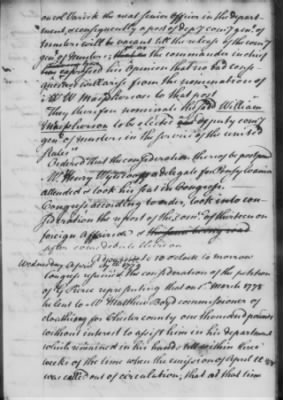 on coll Varick the next senior officer in the depart-
ment, & consequently a post of depy comy genl of
musters will be vacant but the reasons by the comy
genl of musters, the commander in chief
has expressed his opinion that no bad conse
quences will arise from the nomination of
Mr W Macpherson to that post
They therefore nominate the sd William
Macpherson to be elected deputy comy
genl of musters in the service of the united
states
Ordered that the consideration thereof be postpond
Mr Henry Wynkoop a delegate for Pensylvania
attended & took his seat in Congress
Congress according to order, took into con-
sideration the report of the comee of thirteen on
foreign affairs & 
after some debate thereon
adjourned to 10 o clock to morrow
Wednesday April
Congress resumed the consideration of the petition
of G Peirce representing that on 1st March 1778
he lent to Mr Matthew Boyd commissioner of
cloathing for Chester county one thousand pounds
without interest to assist him in his department
which remained in his hands till within three
weeks of the time when the emission of April 11
was called out of circulation; that at that time